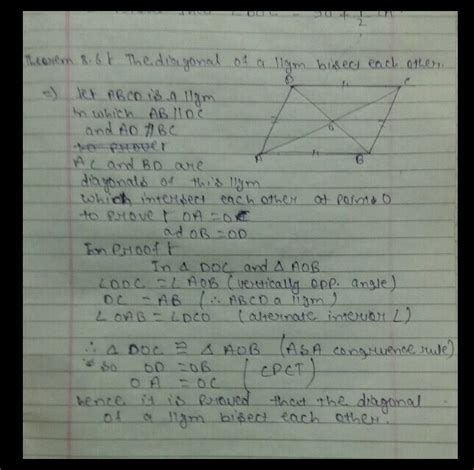 Theorem 8.6 † The diagonal of a ||gm bisect each other.
D C
=> let ABCD is a ||gm
In which AB||DC
and AD ∦ BC
to prover
O
A B
AC and BD are
diagonals of this ||gm
which intersect each other at point O
to prove † OA = OC
ad OB = OD
In Proof †
In △ DOC and △ AOB
∠DOC = ∠AOB (vertically opp. angle)
DC = AB (∴ ABCD a ||gm)
∠ OAB = ∠DCO (alternate interior ∠)
∴ △ DOC ≅ △ AOB (ASA congruence rule)
so OD = OB (CPCT)
OA = OC
hence it is proved that the diagonal
of a ||gm bisect each other.